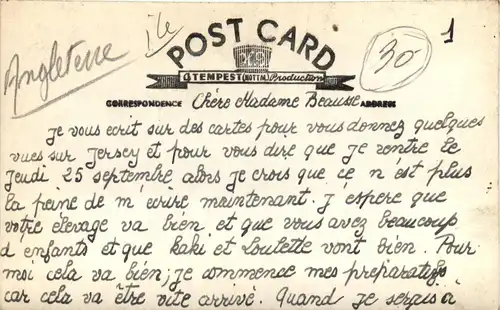 Angleterre
île
POST CARD
30
1
A TEMPEST (NOTTM) Production
CORRESPONDENCE Chère Madame Beausse ADDRESS
Je vous ecrit sur des cartes pour vous donnez quelques
vues sur Jersey et pour vous dire que je rentre le
Jeudi 25 septembre alors je crois que ce n'est plus
la peine de m'écrire maintenant. J'éspere que
votre élevage va bien, et que vous avez beaucoup
d'enfants et que kaki et Loulette vont bien. Pour
moi cela va bien; je commence mes preparatifs
car cela va être vite arrivé. Quand je serais à